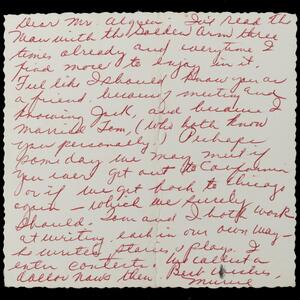 Dear Mr. Algren - I've read the
Man with the Golden Arm three
times already and everytime I
find more to enjoy in it.
Feel like I should know you as
a friend, because meeting and
knowing Jack, and because I
married Tom, (who both know
you personally.) Perhaps
some day we may meet if
you ever get out to California
or if we get back to Chicago
again - which we surely
should. Tom and I both work
at writing, each in our own way -
he writes stories, plays. I
enter contests. We collect a
dollar now & then Best Wishes,